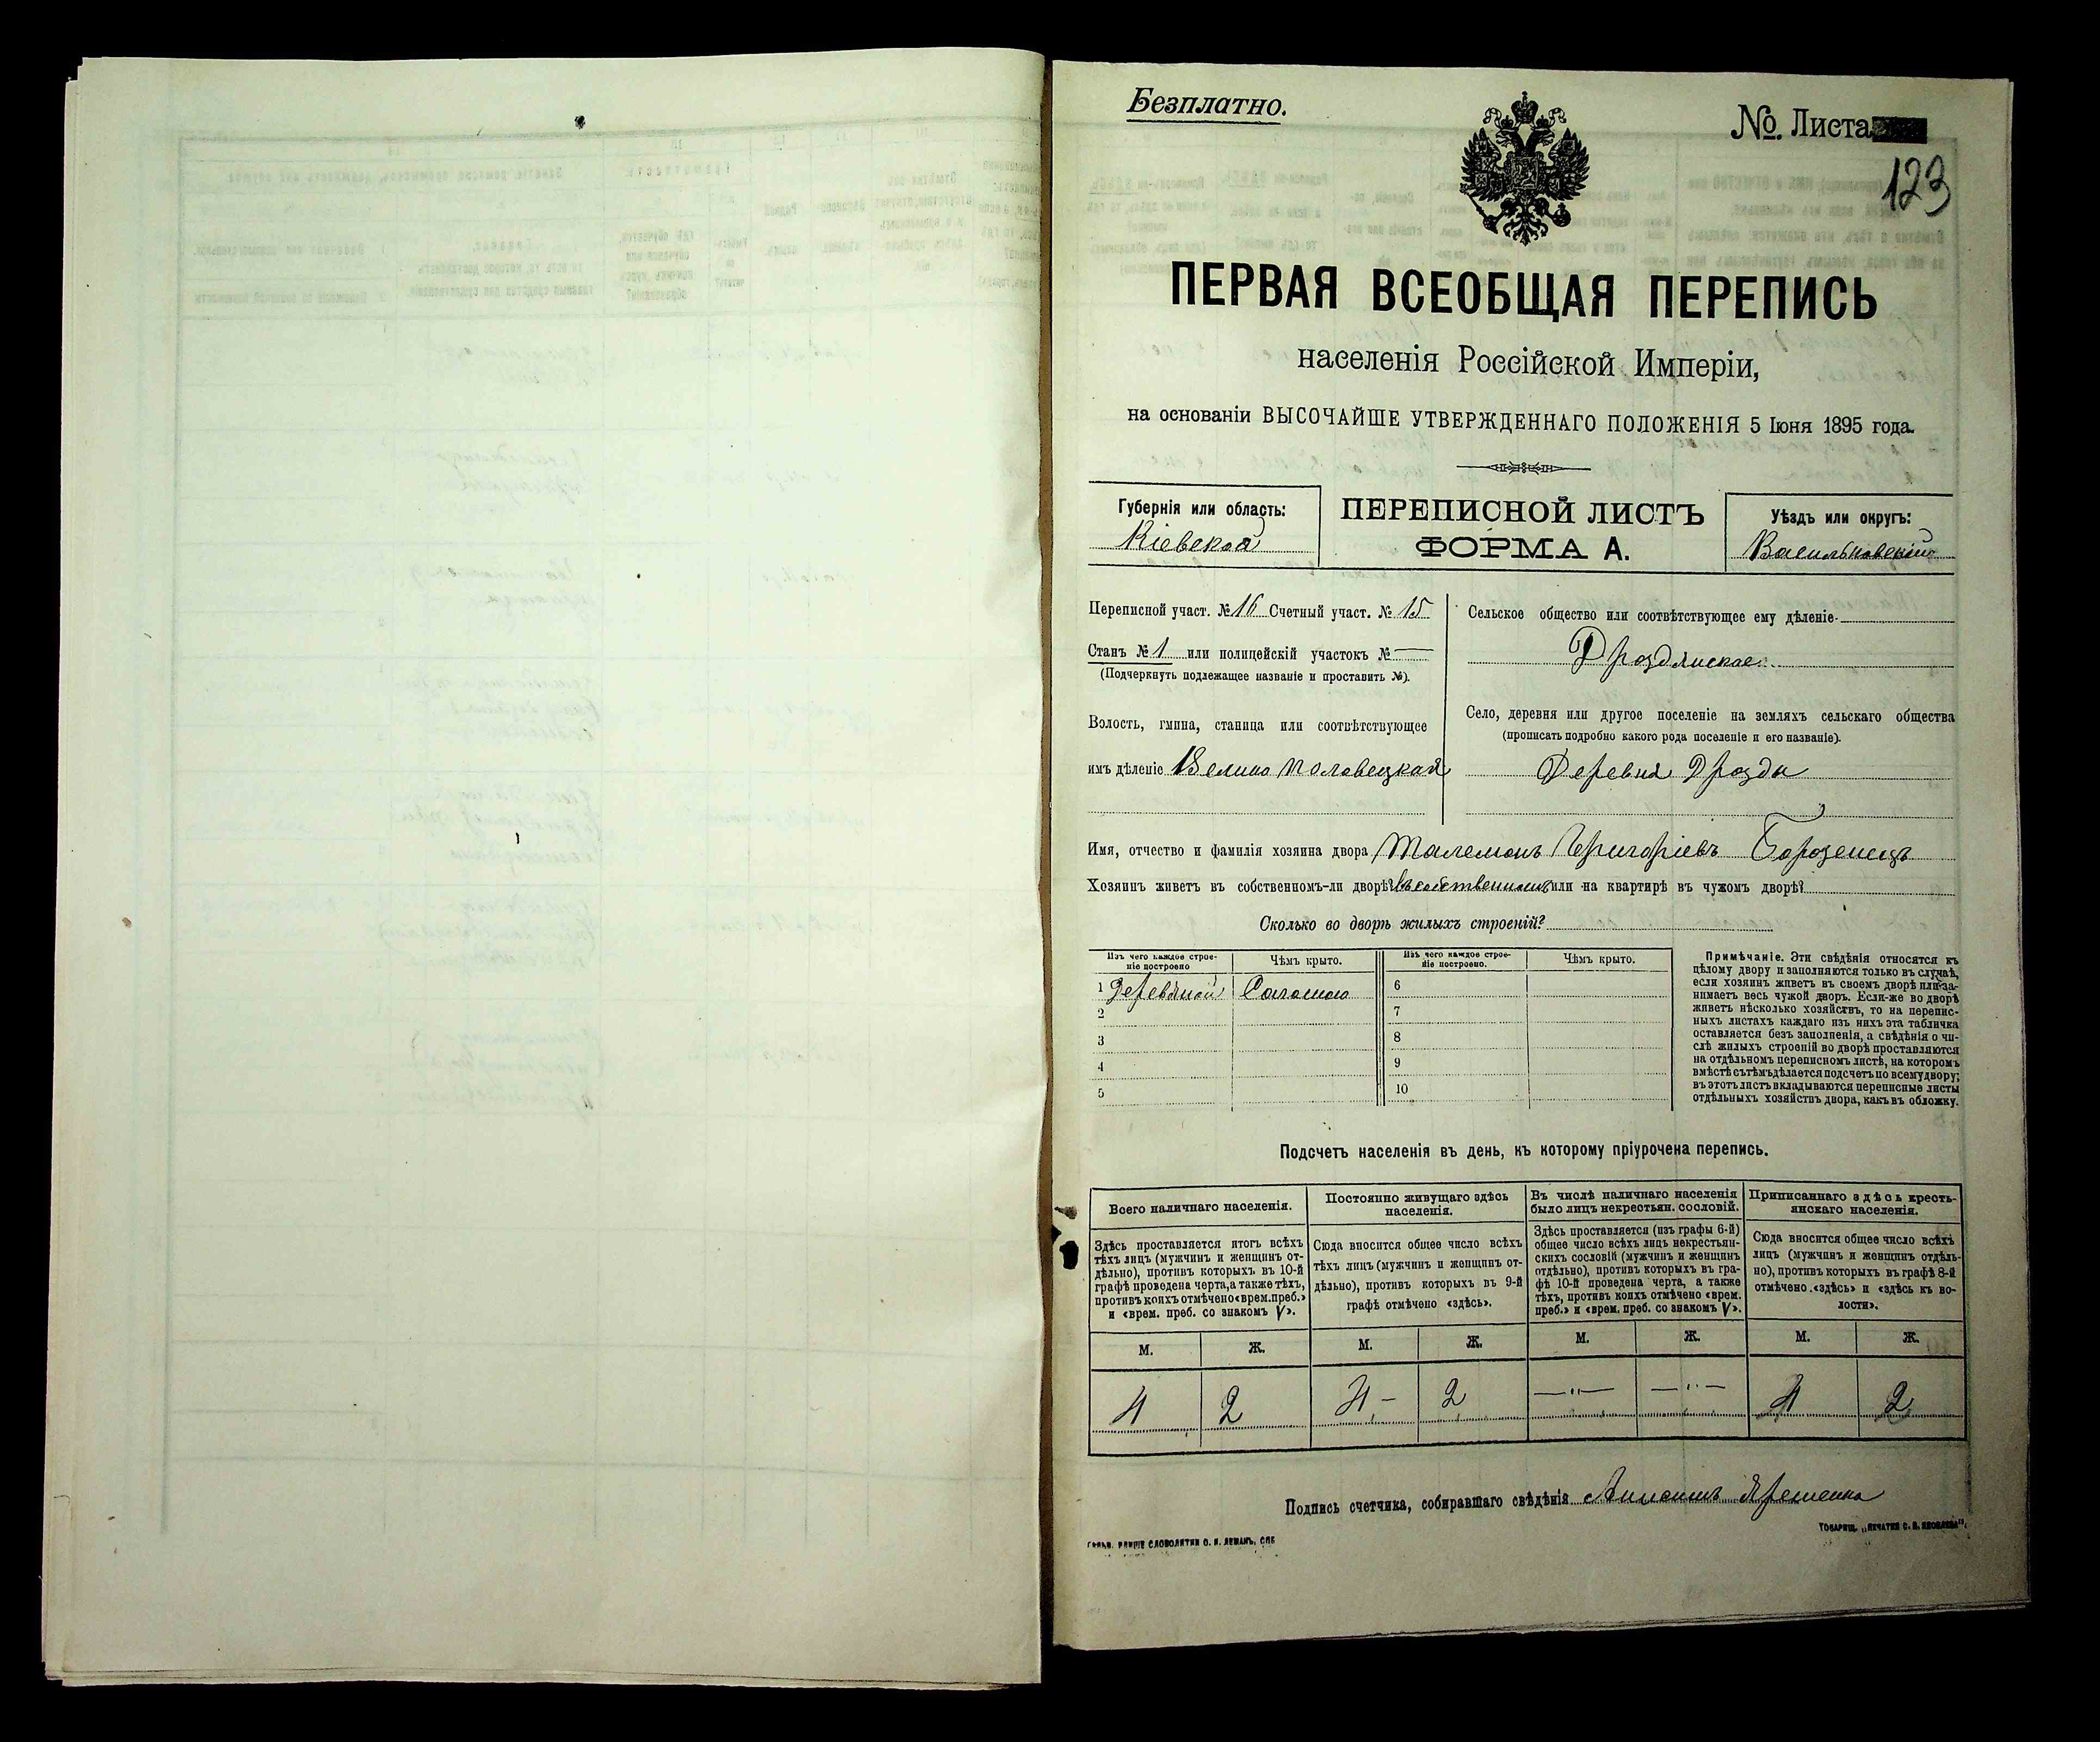 Безплатно.
№. Листа
123
ПЕРВАЯ ВСЕОБЩАЯ ПЕРЕПИСЬ
населенія Россійской Имперіи,
на основаніи ВЫСОЧАЙШЕ УТВЕРЖДЕННАГО ПОЛОЖЕНІЯ 5 Іюня 1895 года.
Губернія или область:
Кіевская
ПЕРЕПИСНОЙ ЛИСТЪ
ФОРМА А.
Уѣздъ или округъ:
Васильковскій
Переписной участ. № 16 Счетный участ. № 15
Станъ № 1 или полицейскій участокъ № —
(Подчеркнуть подлежащее названіе и проставить №).
Волость, гмина, станица или соотвѣтствующее
имъ дѣленіе Велико Половецкая
Сельское общество или соотвѣтствующее ему дѣленіе
Дроздянское
Село, деревня или другое поселеніе на земляхъ сельскаго общества
(прописать подробно какого рода поселеніе и его названіе).
Деревня Дрозды
Имя, отчество и фамилія хозяина двора Григоріевъ
Хозяинъ живетъ въ собственномъ-ли дворѣ? въ собственномъ или на квартирѣ въ чужомъ дворѣ?
Сколько во дворѣ жилыхъ строеній?
Изъ чего каждое строе-
ніе построено
Чѣмъ крыто.
Изъ чего каждое строе-
ніе построено.
Чѣмъ крыто.
1 Деревяной Соломою
2
3
4
5
6
7
8
9
10
Примѣчаніе. Эти свѣдѣнія относятся къ
цѣлому двору и заполняются только въ случаѣ,
если хозяинъ живетъ въ своемъ дворѣ или за-
нимаетъ весь чужой дворъ. Если-же во дворѣ
живетъ нѣсколько хозяйствъ, то на перепис-
ныхъ листахъ каждаго изъ нихъ эта табличка
оставляется безъ заполненія, а свѣдѣнія о чи-
слѣ жилыхъ строеній во дворѣ проставляются
на отдѣльномъ переписномъ листѣ, на которомъ
вмѣстѣ съ тѣмъ дѣлается подсчетъ по всему двору;
въ этотъ листъ вкладываются переписные листы
отдѣльныхъ хозяйствъ двора, какъ въ обложку.
Подсчетъ населенія въ день, къ которому пріурочена перепись.
Всего наличнаго населенія.
Постоянно живущаго здѣсь
населенія.
Въ числѣ наличнаго населенія
было лицъ некрестьян. сословій.
Приписаннаго здѣсь кресть-
янскаго населенія.
Здѣсь проставляется итогъ всѣхъ
тѣхъ лицъ (мужчинъ и женщинъ от-
дѣльно), противъ которыхъ въ 10-й
графѣ проведена черта, а также тѣхъ,
противъ коихъ отмѣчено «врем. преб.»
и «врем. преб. со знакомъ V».
Сюда вносится общее число всѣхъ
тѣхъ лицъ (мужчинъ и женщинъ от-
дѣльно), противъ которыхъ въ 9-й
графѣ отмѣчено «здѣсь».
Здѣсь проставляется (изъ графы 6-й)
общее число всѣхъ лицъ некрестьян-
скихъ сословій (мужчинъ и женщинъ
отдѣльно), противъ которыхъ въ гра-
фѣ 10-й проведена черта, а также
тѣхъ, противъ коихъ отмѣчено «врем.
преб.» и «врем. преб. со знакомъ V».
Сюда вносится общее число всѣхъ
лицъ (мужчинъ и женщинъ отдѣль-
но), противъ которыхъ въ графѣ 8-й
отмѣчено «здѣсь» и «здѣсь къ во-
лости».
М. Ж. М. Ж. М. Ж. М. Ж.
4 2 4 - 2 —"— —"— 4 2
Подпись счетчика, собиравшаго свѣдѣнія
СЛОВОЛИТНИ О. И. ЛЕМАНЪ, СПБ
ТОВАРИЩ. „ПЕЧАТНЯ С. П. ЯКОВЛЕВА".